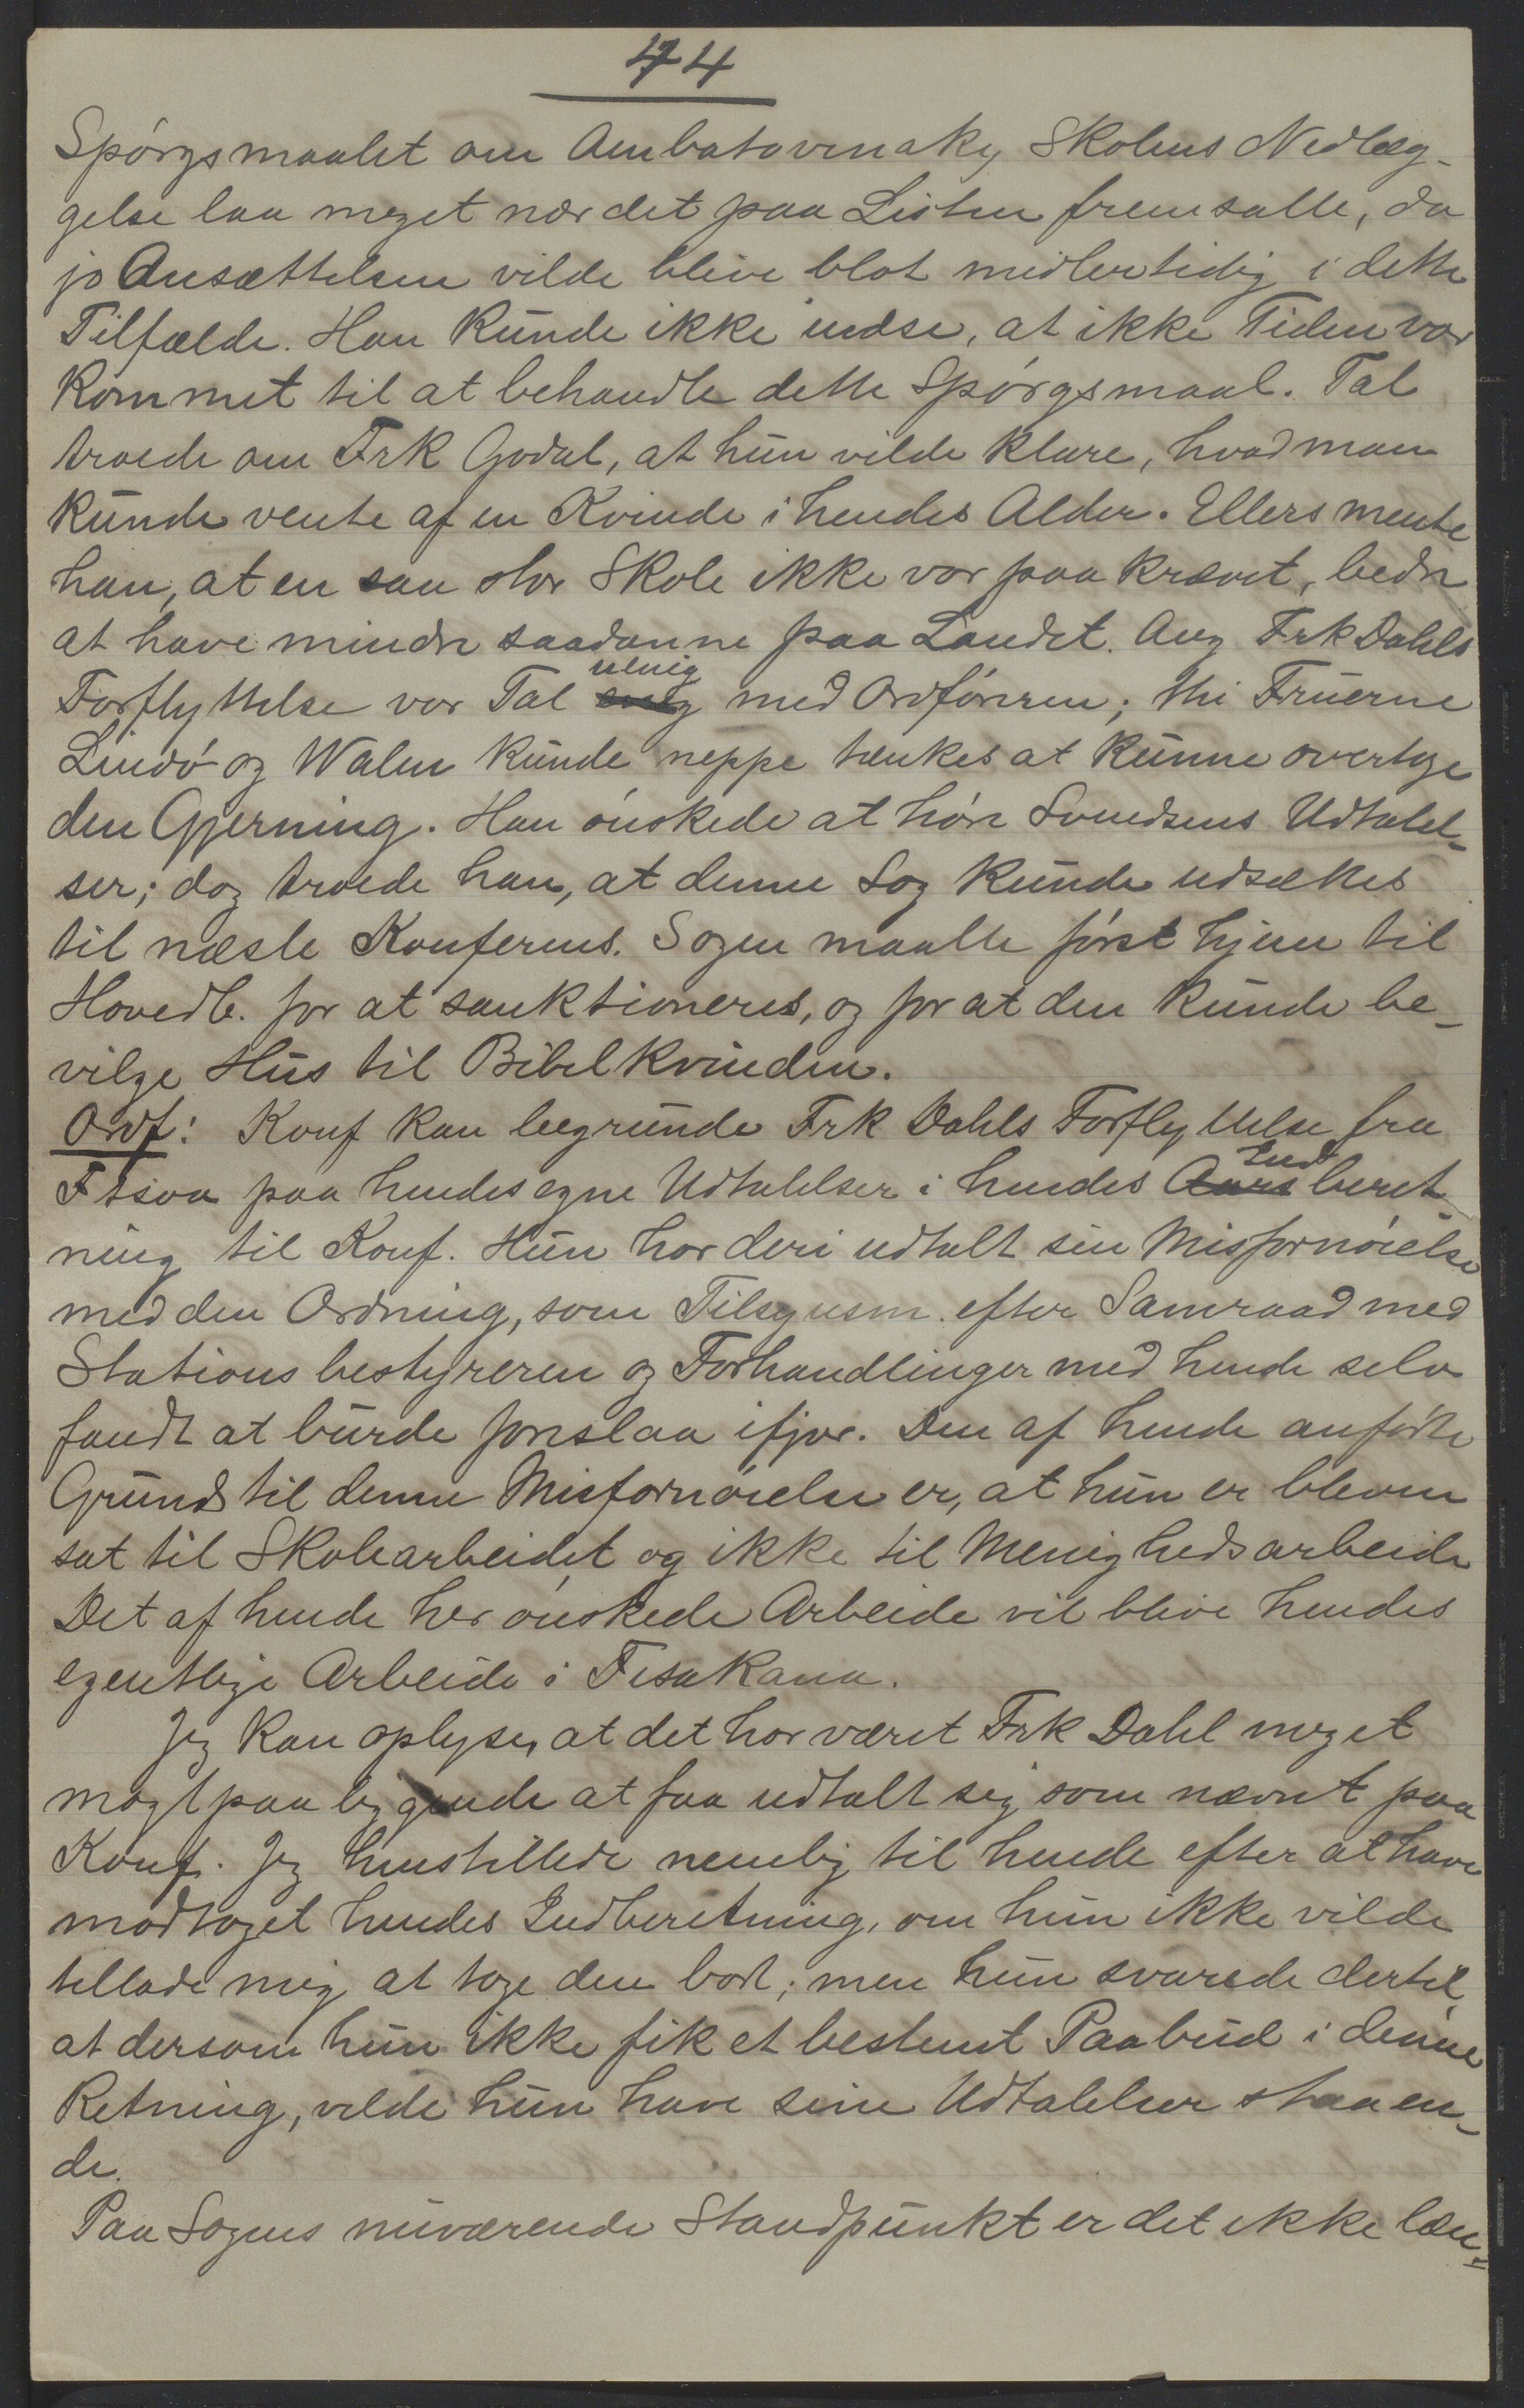 44
Spørgsmaalet om Ambatovinaky Skolens Nedlæg-
gelse laa meget nær det paa Listen fremsatte, da
jo Ansættelsen vilde blive blot midlertidig i dette
Tilfælde. Han kunde ikke indse, at ikke Tiden var
kommet til at behandle dette Spørgsmaal. Tal
troede om Frk Godal, at hun vilde klare, hvad man
kunde vente af en Kvinde i hendes Alder. Ellers mente
han, at en saa stor Skole ikke var paa krævet, bedre
at have mindre saadanne paa Landet. Ang Frk Dahls
Forflyttelse var Tal uenig med Ordføreren; thi Fruerne
Lindø og Walen kunde neppe tænkes at kunne overtage
den Gjerning. Han ønskede at høre Svendsens Udtalel-
ser; dog troede han, at denne Sag kunde udsættes
til næste Konferens. Sagen maatte først hjem til
Hovedb. for at sanktioneres, og for at den kunde be-
vilge Hus til Bibelkvinden.
Ordf: Konf kan begrunde Frk Dahls Forflyttelse fra
Ftsoa paa hendes egne Udtalelser i hendes Aars Ind beret-
ning til Konf. Hun har deri udtalt sin Misfornøielse
med den Ordning, som Tilsynsm. efter Samraad med
Stationsbestyreren og Forhandlinger med hende selv
fandt at burde foreslaa ifjor. Den af hende anførte
Grund til denne Misfornøielse er, at hun er bleven
sat til Skolearbeidet og ikke til Menighedsarbeide
Det af hende her ønskede Arbeide vil blive hendes
egentlige Arbeide i Fisakana.
Jeg kan oplyse, at det har været Frk Dahl meget
magtpaaliggende at faa udtalt sig som nævnt paa
Konf. Jeg henstillede nemlig til hende efter at have
modtaget hendes Indberetning, om hun ikke vilde
tillade mig at tage den bort; men hun svarede dertil,
at dersom hun ikke fik et bestemt Paabud i denne
Retning, vilde hun have sine Udtalelser staaen-
de.
Paa Sagens nuværende Standpunkt er det ikke læn-